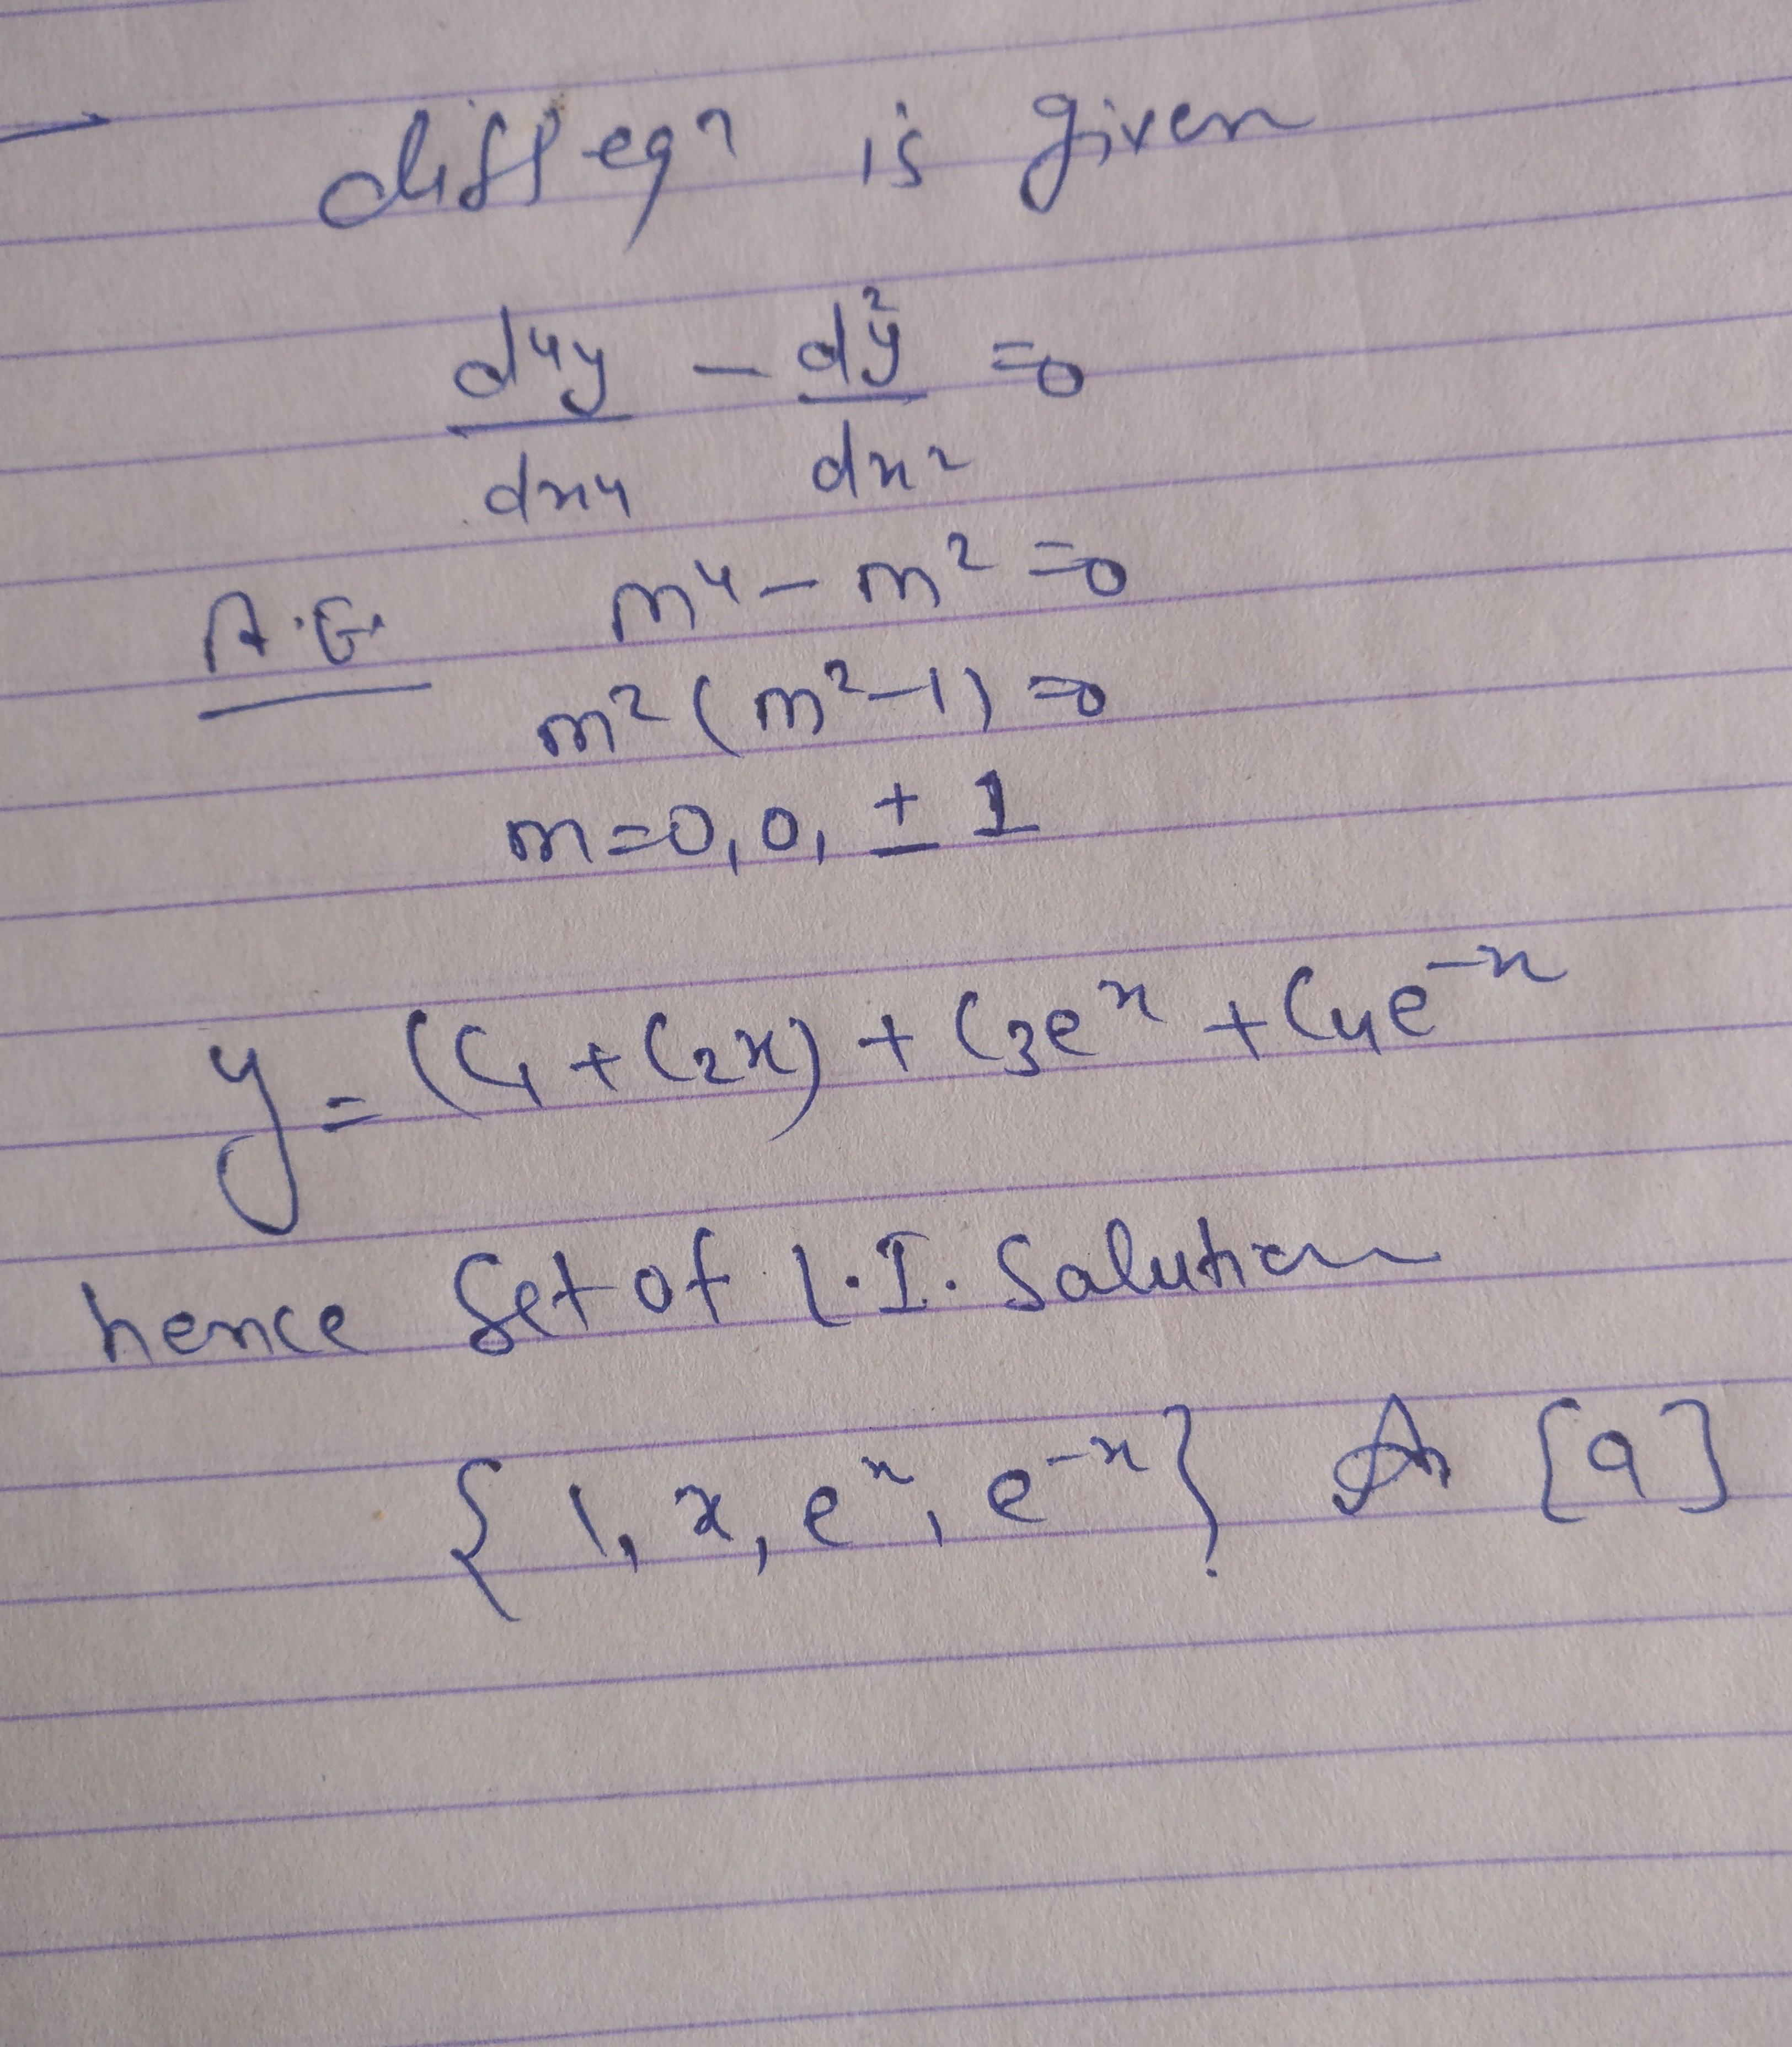 diff eqn is given
d⁴y/dx⁴ - d²y/dx² = 0
A.E. m⁴ - m² = 0
m² (m² - 1) = 0
m = 0, 0, ± 1
y = (C₁ + C₂x) + C₃eˣ + C₄e⁻ˣ
hence Set of L.I. Solution
{ 1, x, eˣ, e⁻ˣ } A [a]